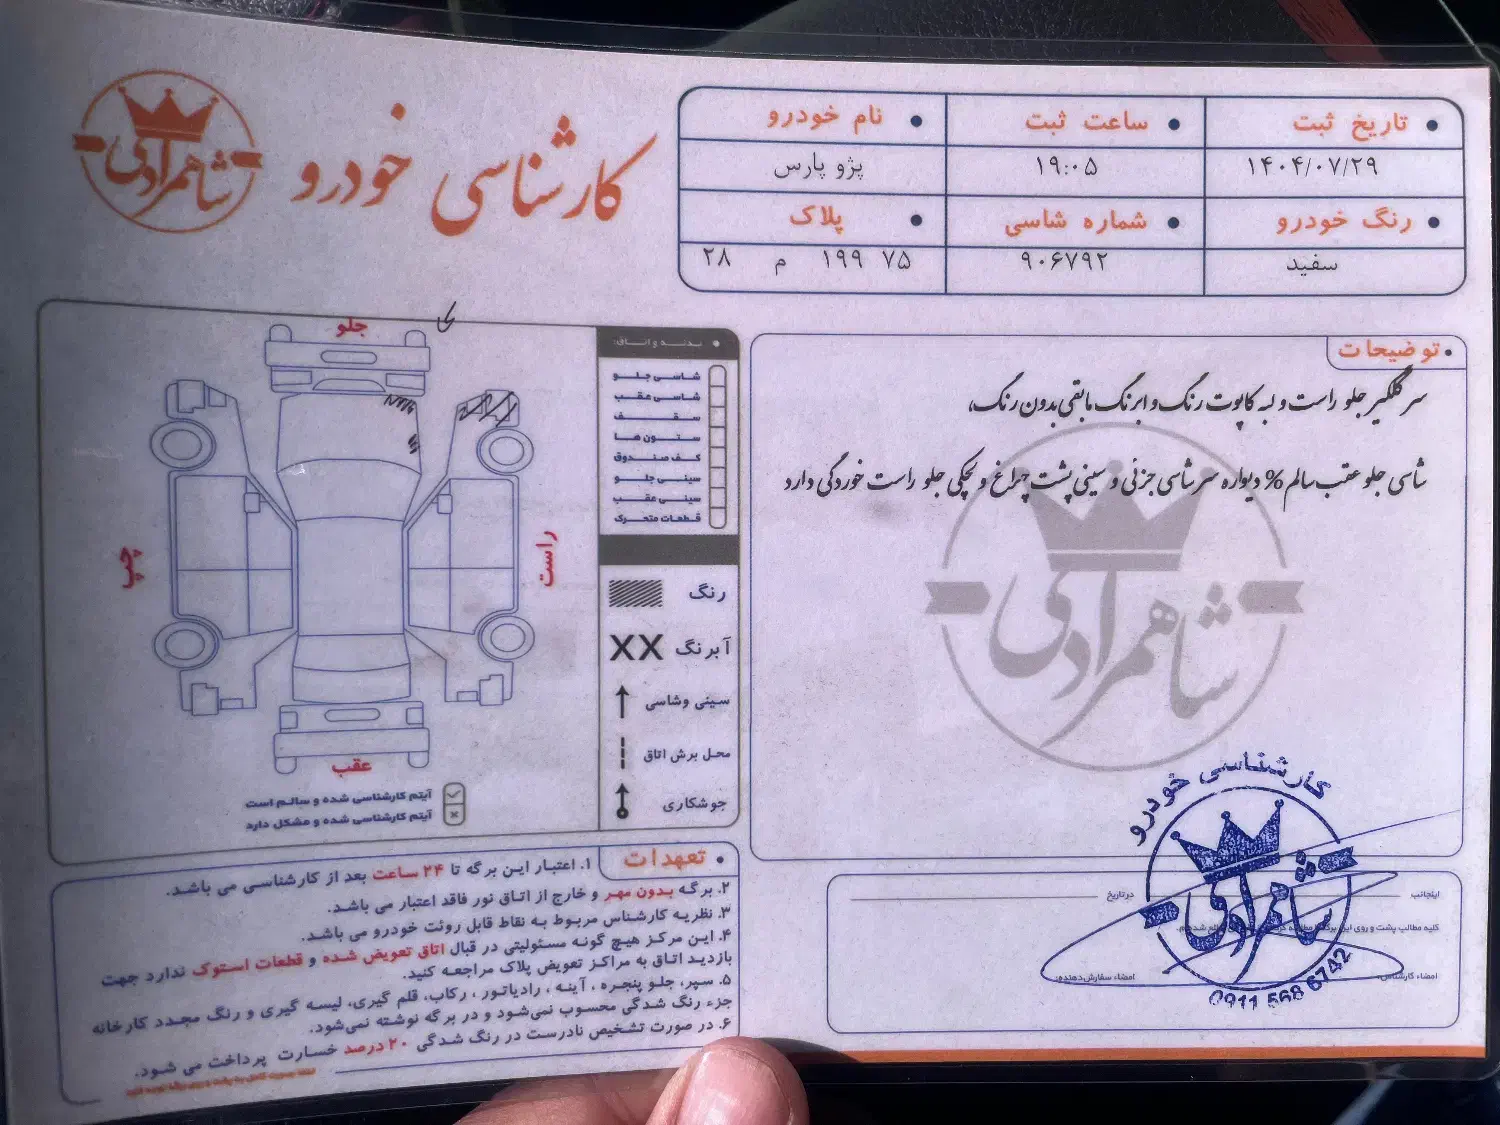 شاهمرادی
کارشناسی خودرو
تاریخ ثبت
ساعت ثبت
نام خودرو
۱۴۰۴/۰۷/۲۹
۱۹:۰۵
پژو پارس
رنگ خودرو
شماره شاسی
پلاک
سفید
۹۰۶۷۹۲
۷۵ ۱۹۹ م ۲۸
توضیحات
سر گلگیر جلو راست و لبه کاپوت رنگ و ابرنگ مابقی بدون رنگ،
شاسی جلو عقب سالم % دیواره سر شاسی جزئی و سینی پشت چراغ و لچکی جلو راست خوردگی دارد
شاهمرادی
جلو
راست
چپ
عقب
بدنه و اتاق:
شاسی جلو
شاسی عقب
سقف
ستون ها
کف صندوق
سینی جلو
سینی عقب
قطعات متحرک
رنگ
آبرنگ XX
سینی وشاسی
محل برش اتاق
جوشکاری
آیتم کارشناسی شده و سالم است
آیتم کارشناسی شده و مشکل دارد
تعهدات
۱. اعتبار این برگه تا ۲۴ ساعت بعد از کارشناسی می باشد.
۲. برگه بدون مهر و خارج از اتاق نور فاقد اعتبار می باشد.
۳. نظریه کارشناس مربوط به نقاط قابل روئت خودرو می باشد.
۴. این مرکز هیچ گونه مسئولیتی در قبال اتاق تعویض شده و قطعات استوک ندارد جهت
بازدید اتاق به مراکز تعویض پلاک مراجعه کنید.
۵. سپر، جلو پنجره، آینه، رادیاتور، رکاب، قلم گیری، لیسه گیری و رنگ مجدد کارخانه
جزء رنگ شدگی محسوب نمی‌شود و در برگه نوشته نمی‌شود.
۶. در صورت تشخیص نادرست در رنگ شدگی ۲۰ درصد خسارت پرداخت می شود.
اینجانب
درتاریخ
کلیه مطالب پشت و روی این برگه
امضاء کارشناس:
امضاء سفارش‌دهنده:
کارشناسی خودرو
شاهمرادی
0911 568 6742